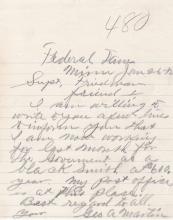 480
Federal Dam
Minn Jan 26
Supt. Friedman
friend I
I am writting to
write to you a few lines
to inform you that
I am now working
for last month for
the Goverment as a
blacksmith at 600 a
year. My post office
is at this place.
Best regard to all.
from Geo A Martin